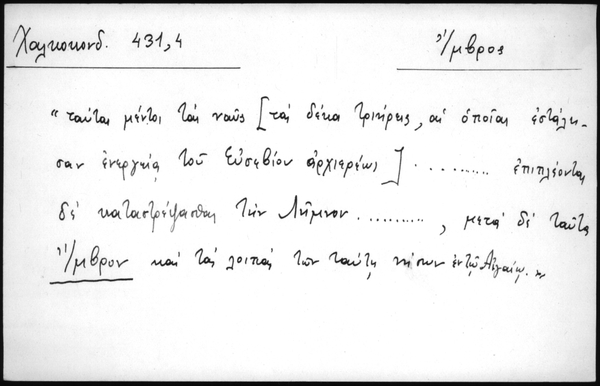 Χαλκοκονδ. 431,4
Ἴμβρος
"ταύτας μέντοι τὰς ναῦς [τὰς δέκα τριήρεις, αἱ ὁποῖαι ἐστάλη-
σαν ἐνεργείᾳ τοῦ Εὐσεβίου ἀρχιερέως] ............ ἐπιπλέοντας
δὲ καταστρέψασθαι τὴν Λῆμνον ..........., μετὰ δὲ ταῦτα
Ἴμβρον καὶ τὰς λοιπὰς τῶν ταύτῃ νήσων ἐν τῷ Αἰγαίῳ."